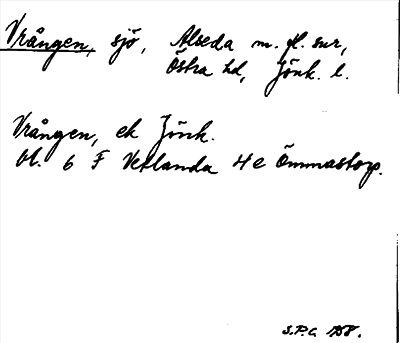 Vrången, sjö, Alseda m. fl. snr,
Östra hd, Jönk. l.
Vrången, ek Jönk.
bl. 6 F Vetlanda 4e Ömmastorp.
S.P.C. 1958.